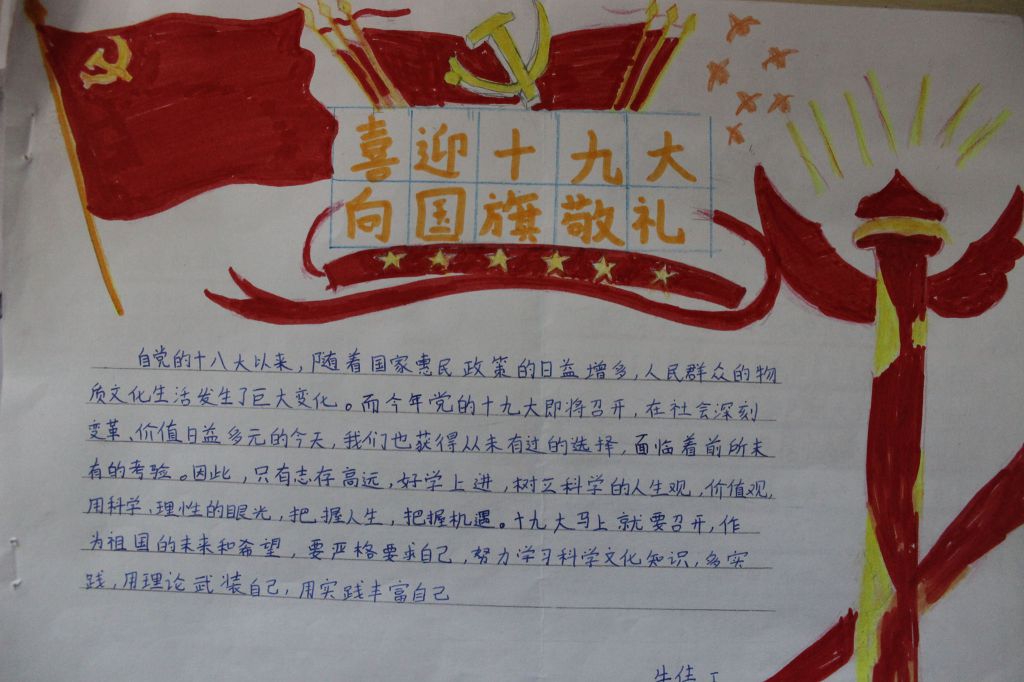 喜迎十九大
向国旗敬礼
自党的十八大以来，随着国家惠民政策的日益增多，人民群众的物
质文化生活发生了巨大变化。而今年党的十九大即将召开，在社会深刻
变革、价值日益多元的今天，我们也获得从未有过的选择，面临着前所未
有的考验。因此，只有志存高远，好学上进，树立科学的人生观，价值观，
用科学、理性的眼光，把握人生，把握机遇。十九大马上就要召开，作
为祖国的未来和希望，要严格要求自己，努力学习科学文化知识，多实
践，用理论武装自己，用实践丰富自己